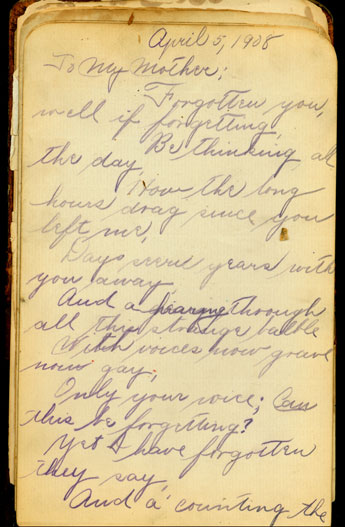 April 5, 1908
To My Mother;
Forgotten you,
well if forgetting,
Be thinking all
the day,
How the long
hours drag since you
left me,
Days seem years with
you away,
And a through
all this strange babble
With voices now grave
now gay;
Only your voice; Can
this be forgetting?
Yet I have forgotten
they say,
And a' counting the